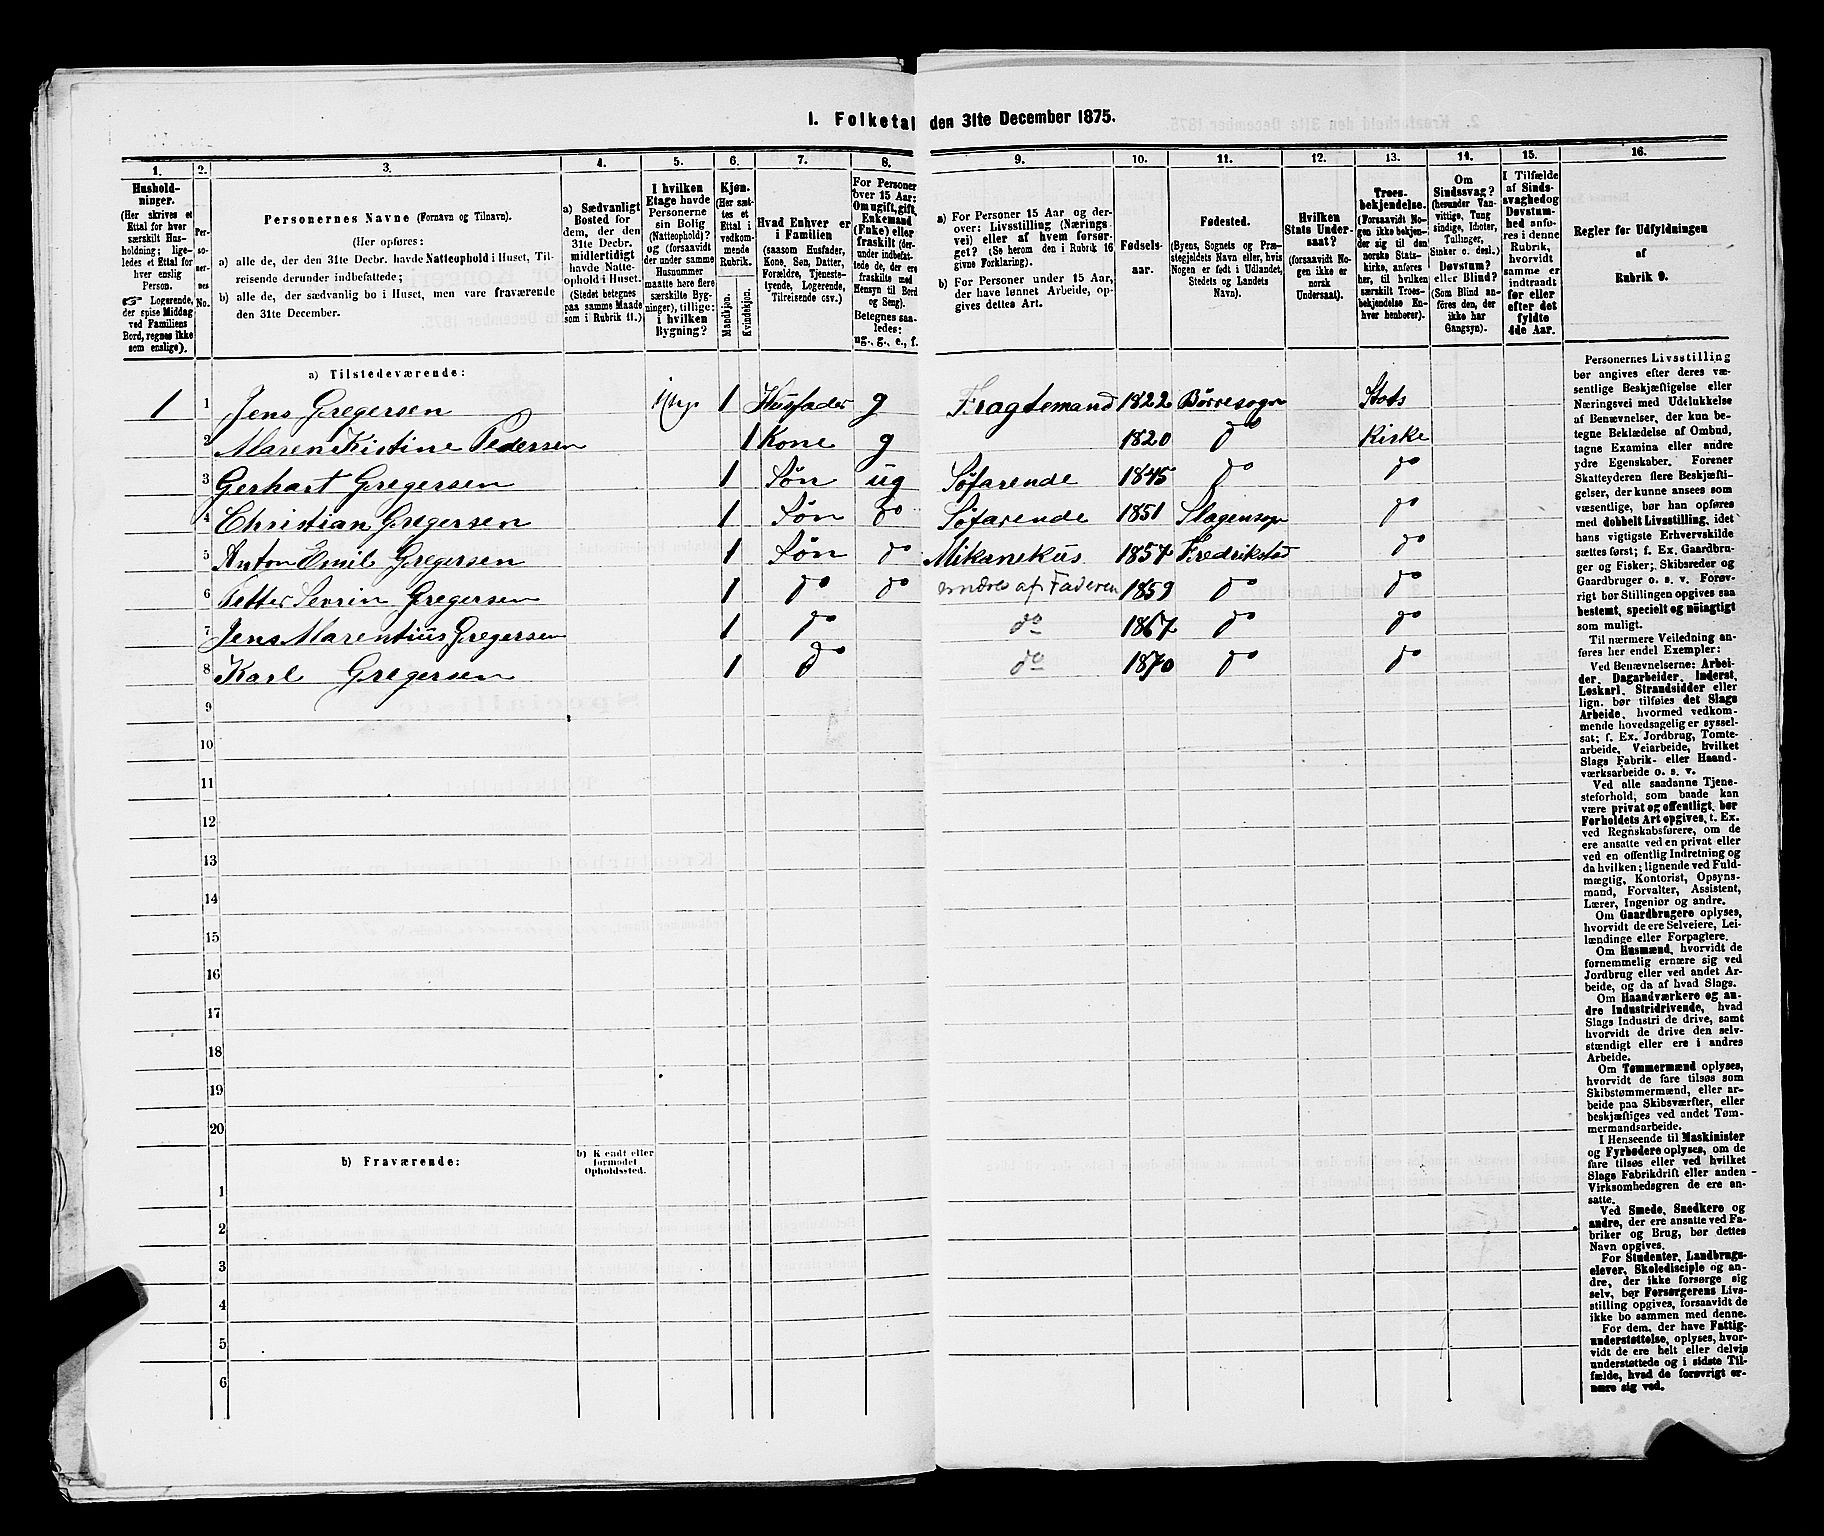 1. Folketal den 31te December 1875.
1. 2. 3. 4. 5. 6. 7. 8. 9. 10. 11. 12. 13. 14. 15. 16.
Husholdninger.
(Her skrives et
Ettal for hver
særskilt Husholdning;
ligeledes et Ettal for
hver enslig
Person.
☞ Logerende,
der spise Middag
ved Familiens
Bord, regnes ikke
som enslige).
Personernes No.
Personernes Navne (Fornavn og Tilnavn).
(Her opføres:
a) alle de, der den 31te Decbr. havde Natteophold i Huset, Tilreisende
derunder indbefattede;
b) alle de, der sædvanlig bo i Huset, men vare fraværende
den 31te December.
a) Sædvanligt
Bosted for
dem, der den
31te Decbr.
midlertidigt
havde Natteophold
i Huset.
(Stedet betegnes
paa samme Maade
som i Rubrik 11.)
I hvilken
Etage havde
Personerne
sin Bolig
(Natteophold)?
og (forsaavidt
der under samme
Husnummer
maatte høre flere
særskilte Bygninger),
tillige:
i hvilken
Bygning?
Kjøn.
(Her sættes
et
Ettal i
vedkommende
Rubrik.
Mandkjøn.
Kvindekjøn.
Hvad Enhver er
i Familien
(saasom Husfader,
Kone, Søn, Datter,
Forældre, Tjenestetyende,
Logerende,
Tilreisende csv.)
For Personer
over 15 Aar:
Om ugift, gift,
Enkemand
(Enke) eller
fraskilt (derunder
indbefattede
de, der ere
fraskilte med
Hensyn til Bord
og Seng).
Betegnes saaledes:
ug., g., e., f.
a) For Personer 15 Aar og derover:
Livsstilling (Næringsvei)
eller af hvem forsørget?
(Se herom den i Rubrik 16
givne Forklaring).
b) For Personer under 15 Aar,
der have lønnet Arbeide, opgives
dettes Art.
Fødselsaar.
Fødested.
(Byens, Sognets og Præstegjeldets
Navn eller, hvis
Nogen er født i Udlandet,
Stedets og Landets
Navn).
Hvilken
Stats Undersaat?
(forsaavidt Nogen
ikke er
norsk
Undersaat).
Troesbekjendelse.
(Forsaavidt Nogen
ikke bekjender
sig til den
norske Statskirke,
anføres
her, til hvilken
særskilt Troesbekjendelse
Enhver
henhører).
Om
Sindssvag?
(herunder Vanvittige,
Tungsindige,
Idioter,
Tullinger,
Sinker o. desl.).
Døvstum?
eller Blind?
(Som Blind anføres
den, der
ikke har
Gangsyn).
I Tilfælde
af Sindssvaghed
og
Døvstumhed
anføres
i denne
Rubrik,
hvorvidt
samme er
indtraadt
før eller
efter det
fyldte
4de Aar.
Regler for Udfyldningen
af
Rubrik 9.
a) Tilstedeværende:
1 1 Jens Gregersen 1 Husfader g Fragtemand 1822 Børresogn Stats
2 Maren Kistine Pedersen 1 Kone g 1820 do Kirke
3 Gerhart Gregersen 1 Søn ug Søfarende 1845 do do
4 Christian Gregersen 1 Søn do Søfarende 1851 Slagensogn do
5 Anton Emil Gregersen 1 Søn do Mikanekus 1857 Fredrikstad do
6 Petter Sevrin Gregersen 1 do do ernæres af Faderen 1859 do do
7 Jens Marentius Gregersen 1 do do 1867 do do
8 Karl Gregersen 1 do do 1870 do do
9
10
11
12
13
14
15
16
17
18
19
20
b) Fraværende:
b) Kjendt eller
formodet
Opholdssted.
1
2
3
4
5
6
Personernes Livsstilling
bør angives efter deres væsentlige
Beskjæftigelse eller
Næringsvei med Udelukkelse
af Benævnelser, der kun betegne
Beklædelse af Ombud,
tagne Examina eller andre
ydre Egenskaber. Forener
Skatteyderen flere Beskjæftigelser,
der kunne ansees som
væsentlige, bør han opføres
med dobbelt Livsstilling, idet
hans vigtigste Erhvervskilde
sættes først; f. Ex. Gaardbruger
og Fisker; Skibsreder og
Gaardbruger o. s. v. Forøvrigt
bør Stillingen opgives saa
bestemt, specielt og nöiagtigt
som muligt.
Til nærmere Veiledning anføres
her endel Exempler:
Ved Benævnelserne: Arbeider,
Dagarbeider, Inderst,
Løskarl, Strandsidder eller
lign. bør tilføies det Slags
Arbeide, hvormed vedkommende
hovedsagelig er sysselsat;
f. Ex. Jordbrug, Tomtearbeide,
Veiarbeide, hvilket
Slags Fabrik- eller Haandværksarbeide
o. s. v.
Ved alle saadanne Tjenesteforhold,
som baade kan
være privat og offentligt, bør
Forholdets Art opgives, t. Ex.
ved Regnskabsførere, om de
ere ansatte ved en privat eller
ved en offentlig Indretning og
da hvilken; lignende ved Fuldmægtig,
Kontorist, Opsynsmand,
Forvalter, Assistent,
Lærer, Ingeniør og andre.
Om Gaardbrugere oplyses,
hvorvidt de ere Selveiere, Leilændinge
eller Forpagtere.
Om Husmænd, hvorvidt de
fornemmelig ernære sig ved
Jordbrug eller ved andet Arbeide,
og da af hvad Slags.
Om Haandværkere og andre
Industridrivende, hvad
Slags Industri de drive, samt
hvorvidt de drive den selvstændigt
eller ere i andres
Arbeide.
Om Tømmermænd oplyses,
hvorvidt de fare tilsøs som
Skibstømmermænd, eller arbeide
paa Skibsværfter, eller
beskjæftiges ved andet Tømmermandsarbeide.
I Henseende til Maskinister
og Fyrbødere oplyses, om de
fare tilsøs eller ved hvilket
Slags Fabrikdrift eller anden
Virksomhedsgren de ere ansatte.
Ved Smede, Snedkere og
andre, der ere ansatte ved Fabriker
og Brug, bør dettes
Navn opgives.
For Studenter, Landbrugselever,
Skoledisciple og andre,
der ikke forsørge sig
selv, bør Forsørgerens Livsstilling
opgives, forsaavidt de
ikke bo sammen med denne.
For dem, der have Fattigunderstøttelse,
oplyses, hvorvidt
de ere helt eller delvis
understøttede og i sidste Tilfælde,
hvad de forøvrigt ernære
sig ved.